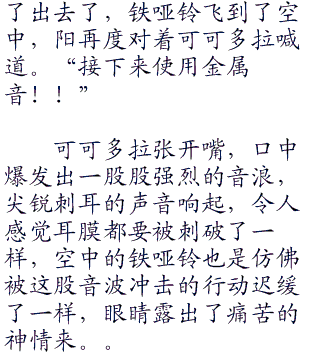 了出去了，铁哑铃飞到了空
中，阳再度对着可可多拉喊
道。“接下来使用金属
音！！”
可可多拉张开嘴，口中
爆发出一股股强烈的音浪，
尖锐刺耳的声音响起，令人
感觉耳膜都要被刺破了一
样，空中的铁哑铃也是仿佛
被这股音波冲击的行动迟缓
了一样，眼睛露出了痛苦的
神情来。。